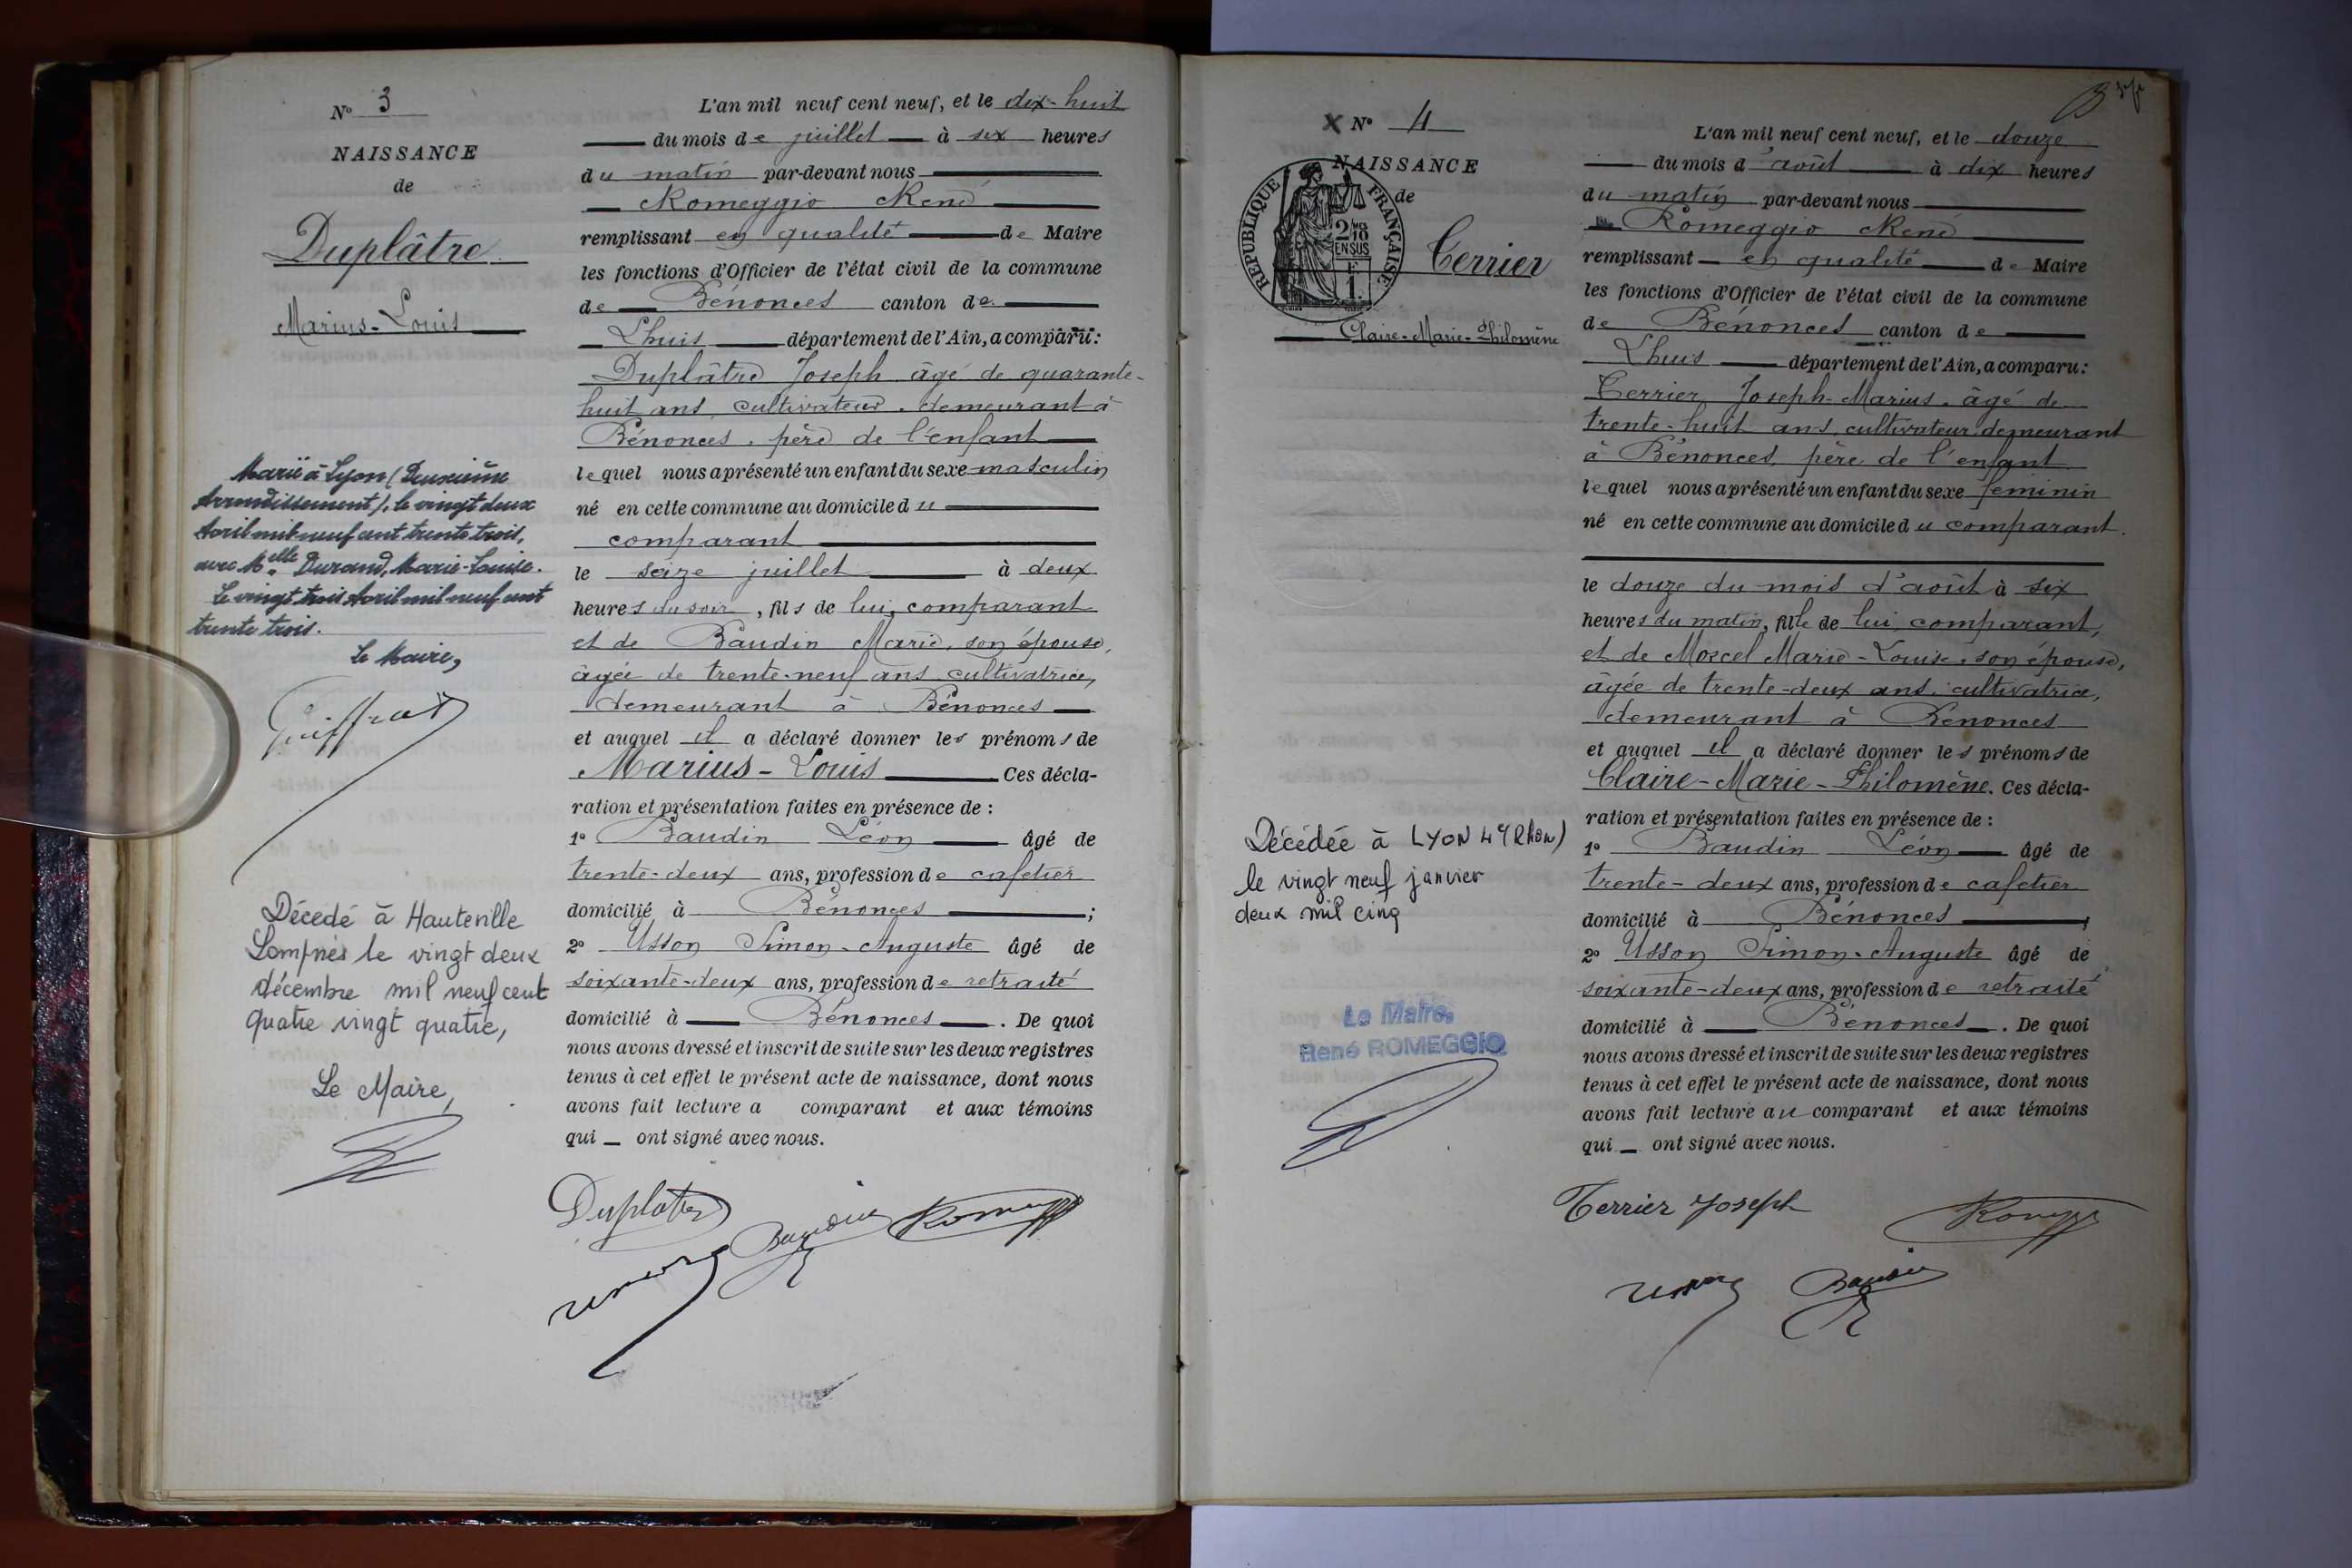 N° 3
NAISSANCE
de
Duplâtre
Marius-Louis
Marié à Lyon (Deuxième
Arrondissement), le vingt deux
Avril mil neuf cent trente trois,
avec Melle Durand, Marie-Louise.
Le vingt trois Avril mil neuf cent
trente trois.
Le Maire,
Décédé à Hauteville
Lompnes le vingt deux
décembre mil neuf cent
quatre vingt quatre,
Le Maire,
L'an mil neuf cent neuf, et le dix-huit
du mois de juillet à six heures
du matin par-devant nous
Romeggio René
remplissant en qualité de Maire
les fonctions d'Officier de l'état civil de la commune
de Bénonces canton de
Lhuis département de l'Ain, a comparu:
Duplâtre Joseph âgé de quarante-
huit ans, cultivateur, demeurant à
Bénonces, père de l'enfant
lequel nous a présenté un enfant du sexe masculin
né en cette commune au domicile du
comparant
le seize juillet à deux
heures du soir, fils de lui, comparant
et de Baudin Marie, son épouse,
âgée de trente-neuf ans, cultivatrice,
demeurant à Bénonces
et auquel il a déclaré donner les prénoms de
Marius-Louis Ces décla-
ration et présentation faites en présence de :
1° Baudin Léon âgé de
trente-deux ans, profession de cafetier
domicilié à Bénonces ;
2° Usson Simon-Auguste âgé de
soixante-deux ans, profession de retraité
domicilié à Bénonces . De quoi
nous avons dressé et inscrit de suite sur les deux registres
tenus à cet effet le présent acte de naissance, dont nous
avons fait lecture a comparant et aux témoins
qui ont signé avec nous.
Duplatre
Baudin
X N° 4
NAISSANCE
de
REPUBLIQUE FRANÇAISE
2/10
EN SUS
1F
Terrier
Claire-Marie-Philomène
Décédée à LYON 4e (Rhône)
le vingt neuf janvier
deux mil cinq
Le Maire,
René ROMEGGIO
L'an mil neuf cent neuf, et le douze
du mois d'août à dix heures
du matin par-devant nous
Romeggio René
remplissant en qualité de Maire
les fonctions d'Officier de l'état civil de la commune
de Bénonces canton de
Lhuis département de l'Ain, a comparu:
Terrier Joseph-Marius, âgé de
trente-huit ans, cultivateur demeurant
à Bénonces, père de l'enfant
lequel nous a présenté un enfant du sexe féminin
né en cette commune au domicile du comparant.
le douze du mois d'août à six
heures du matin, fille de lui, comparant,
et de Morcel Marie-Louise, son épouse,
âgée de trente-deux ans, cultivatrice,
demeurant à Bénonces
et auquel il a déclaré donner les prénoms de
Claire-Marie-Philomène. Ces décla-
ration et présentation faites en présence de :
1° Baudin Léon âgé de
trente-deux ans, profession de cafetier
domicilié à Bénonces ;
2° Usson Simon-Auguste âgé de
soixante-deux ans, profession de retraité
domicilié à Bénonces . De quoi
nous avons dressé et inscrit de suite sur les deux registres
tenus à cet effet le présent acte de naissance, dont nous
avons fait lecture au comparant et aux témoins
qui ont signé avec nous.
Terrier Joseph
Baudin